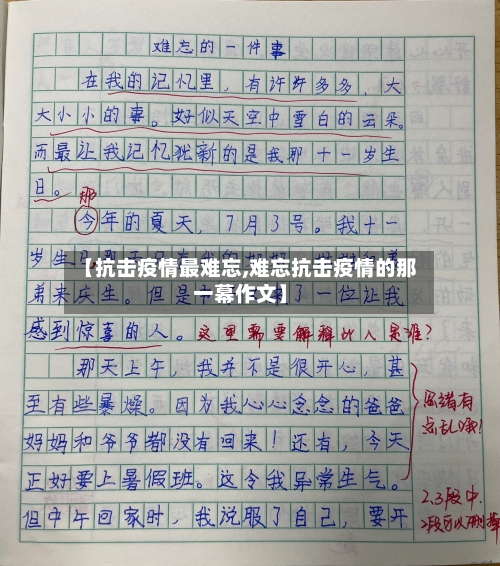 难忘的一件事
在我的记忆里，有许许多多，大
大小小的事。好似天空中雪白的云朵。
而最让我记忆犹新的是我那十一岁生
日。
那
今年的夏天，7月3号。我十一
岁生日
【抗击疫情最难忘,难忘抗击疫情的那
一幕作文】
弟来庆生。但是 了一位让我
感到惊喜的人。这里需要解释此人是谁？
那天上午，我并不是很开心，甚
至有些暴燥。因为我心心念念的爸爸
思绪有
点乱哦！
妈妈和爷爷都没有回来！还有，今天
正好要上暑假班。这令我异常生气。
2.3段中.
但中午回家时，我说服了自己，要开
2段可以删掉